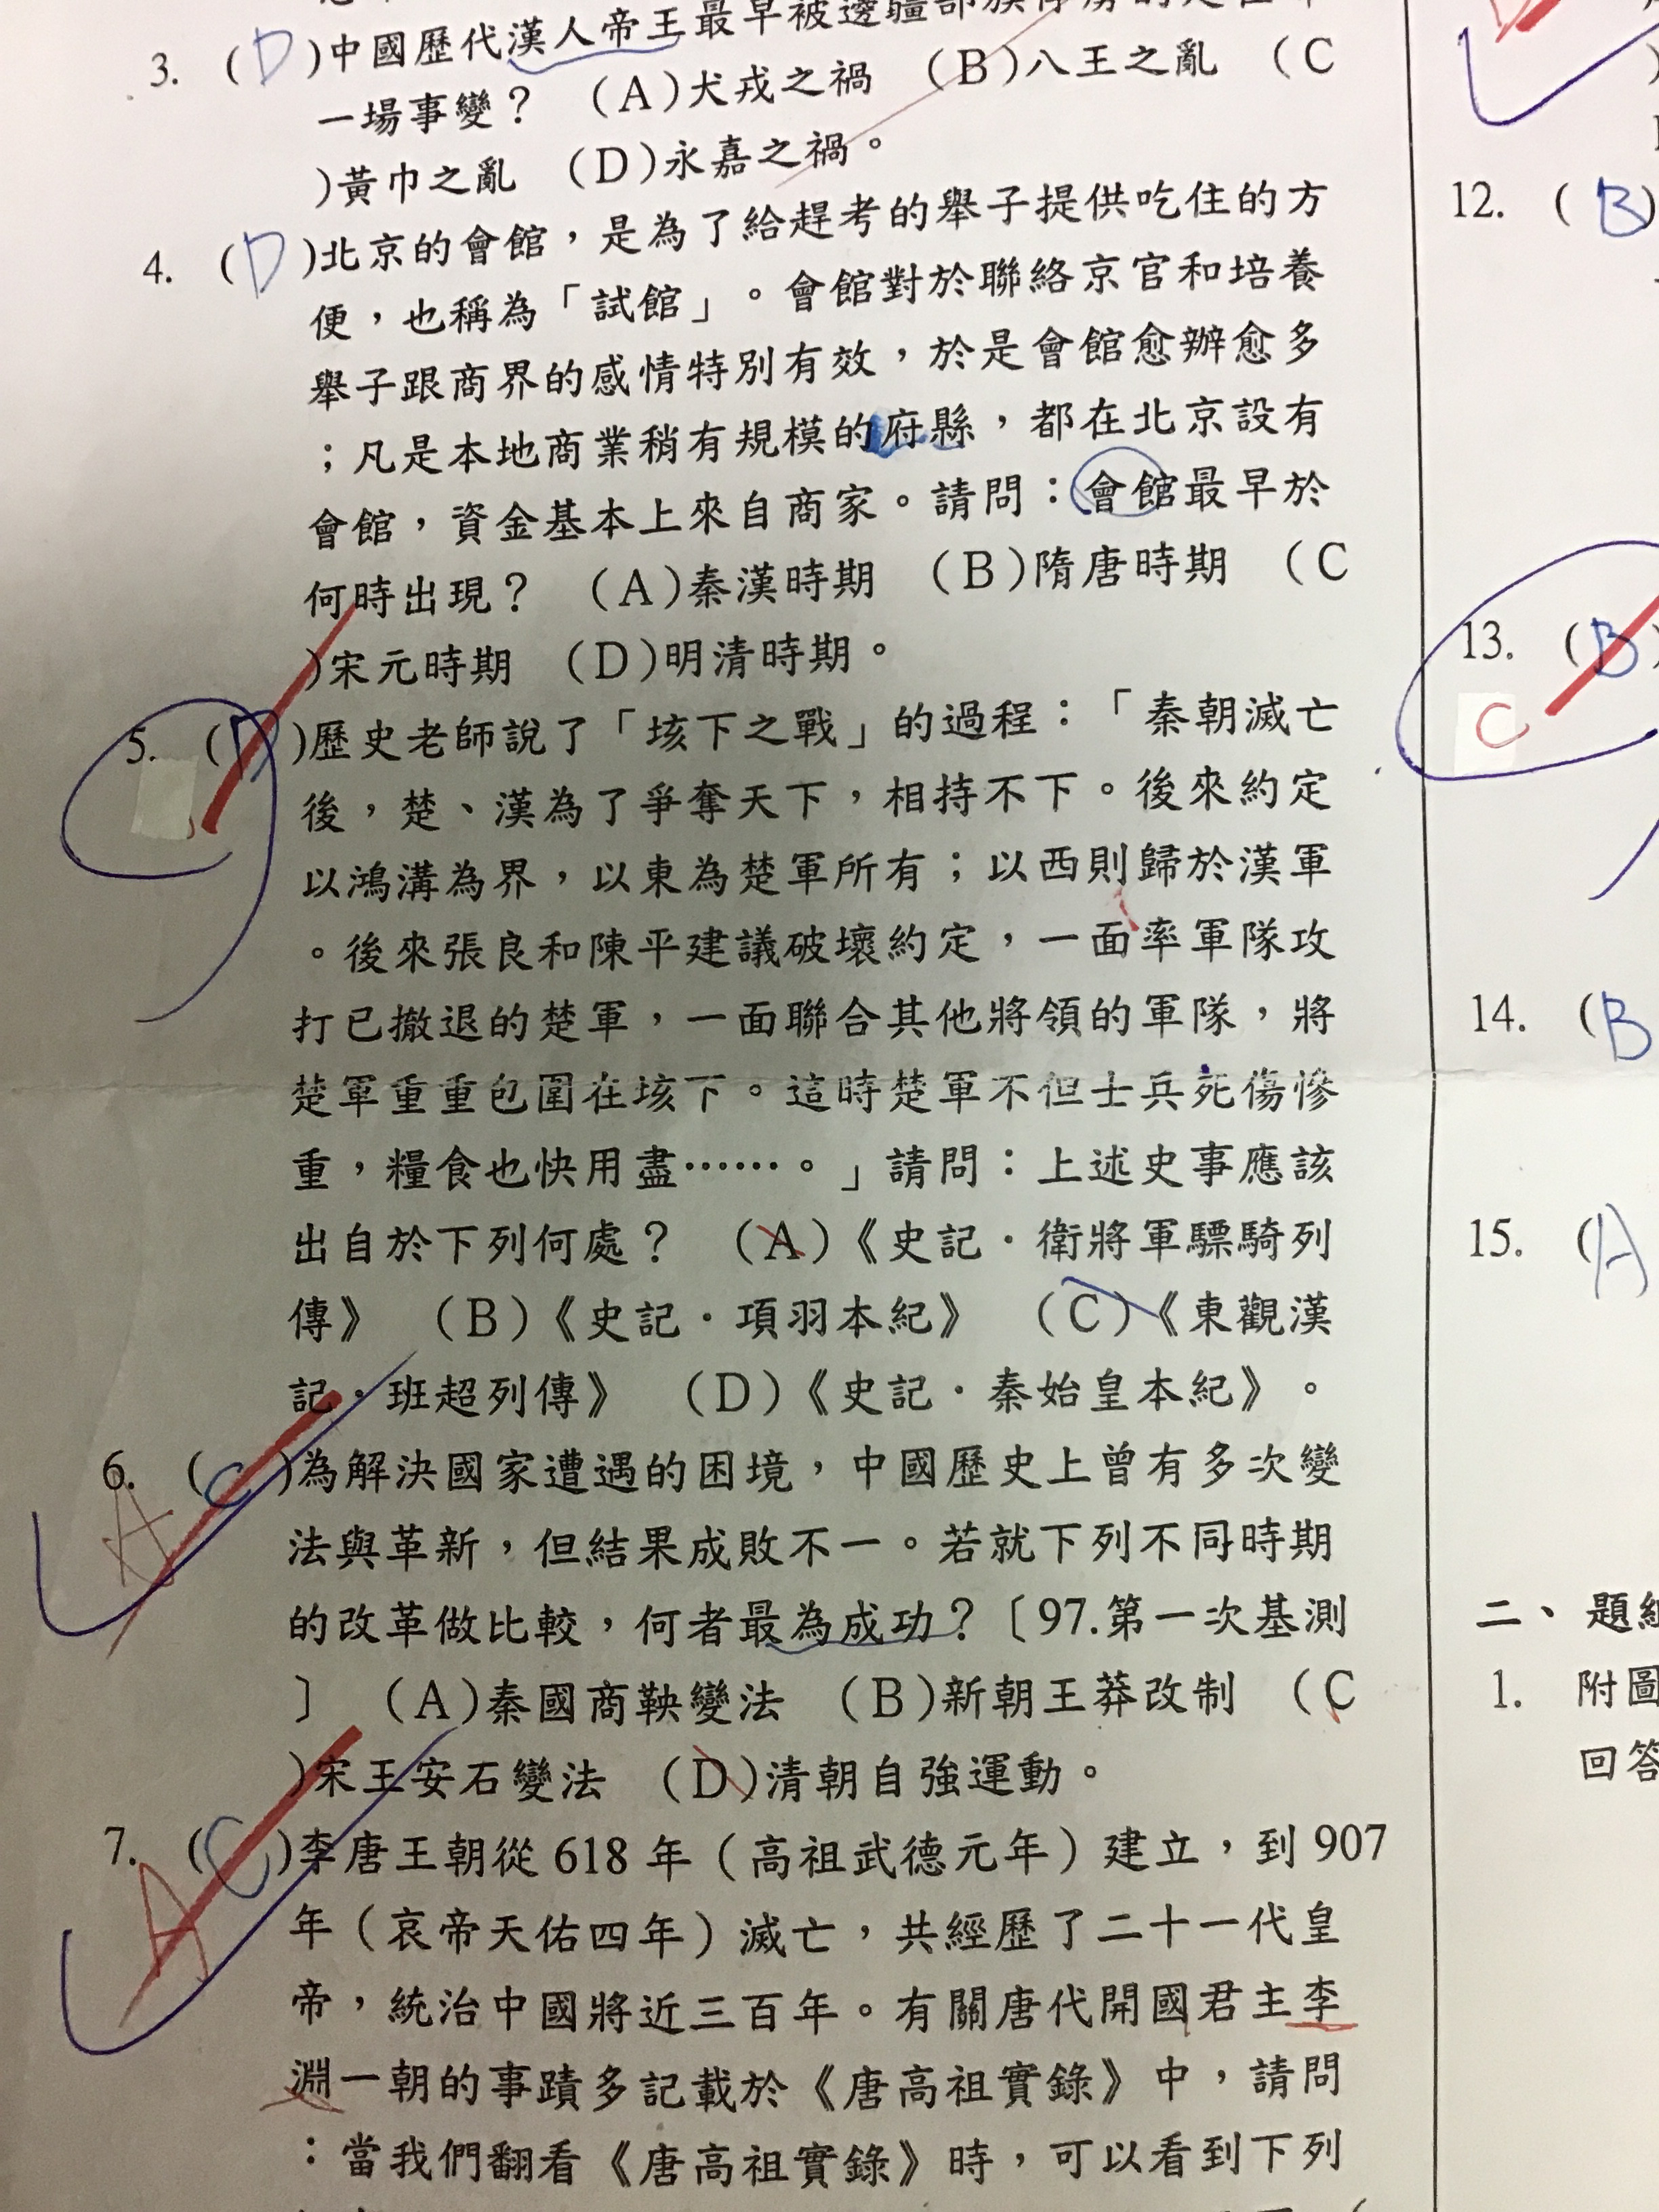 3. (D)中國歷代漢人帝王最早被邊疆部族俘虜的是
一場事變? (A)犬戎之禍 (B)八王之亂 (C
)黃巾之亂 (D)永嘉之禍。
4. (D)北京的會館,是為了給趕考的舉子提供吃住的方
便,也稱為「試館」。會館對於聯絡京官和培養
舉子跟商界的感情特別有效,於是會館愈辦愈多
;凡是本地商業稍有規模的府縣,都在北京設有
會館,資金基本上來自商家。請問:會館最早於
何時出現? (A)秦漢時期 (B)隋唐時期 (C
)宋元時期 (D)明清時期。
5. (D)歷史老師說了「垓下之戰」的過程:「秦朝滅亡
後,楚、漢為了爭奪天下,相持不下。後來約定
以鴻溝為界,以東為楚軍所有;以西則歸於漢軍
。後來張良和陳平建議破壞約定,一面率軍隊攻
打已撤退的楚軍,一面聯合其他將領的軍隊,將
楚軍重重包圍在垓下。這時楚軍不但士兵死傷慘
重,糧食也快用盡……。」請問:上述史事應該
出自於下列何處? (A)《史記.衛將軍驃騎列
傳》 (B)《史記.項羽本紀》 (C)《東觀漢
記.班超列傳》 (D)《史記.秦始皇本紀》。
6. (C)為解決國家遭遇的困境,中國歷史上曾有多次變
A
法與革新,但結果成敗不一。若就下列不同時期
的改革做比較,何者最為成功?〔97.第一次基測
〕 (A)秦國商鞅變法 (B)新朝王莽改制 (C
)宋王安石變法 (D)清朝自強運動。
7. (C)李唐王朝從 618 年(高祖武德元年)建立,到 907
A
年(哀帝天佑四年)滅亡,共經歷了二十一代皇
帝,統治中國將近三百年。有關唐代開國君主李
淵一朝的事蹟多記載於《唐高祖實錄》中,請問
:當我們翻看《唐高祖實錄》時,可以看到下列
12. (B)
13. (B)
C
14. (B
15. (A
二、題組
1. 附圖
回答